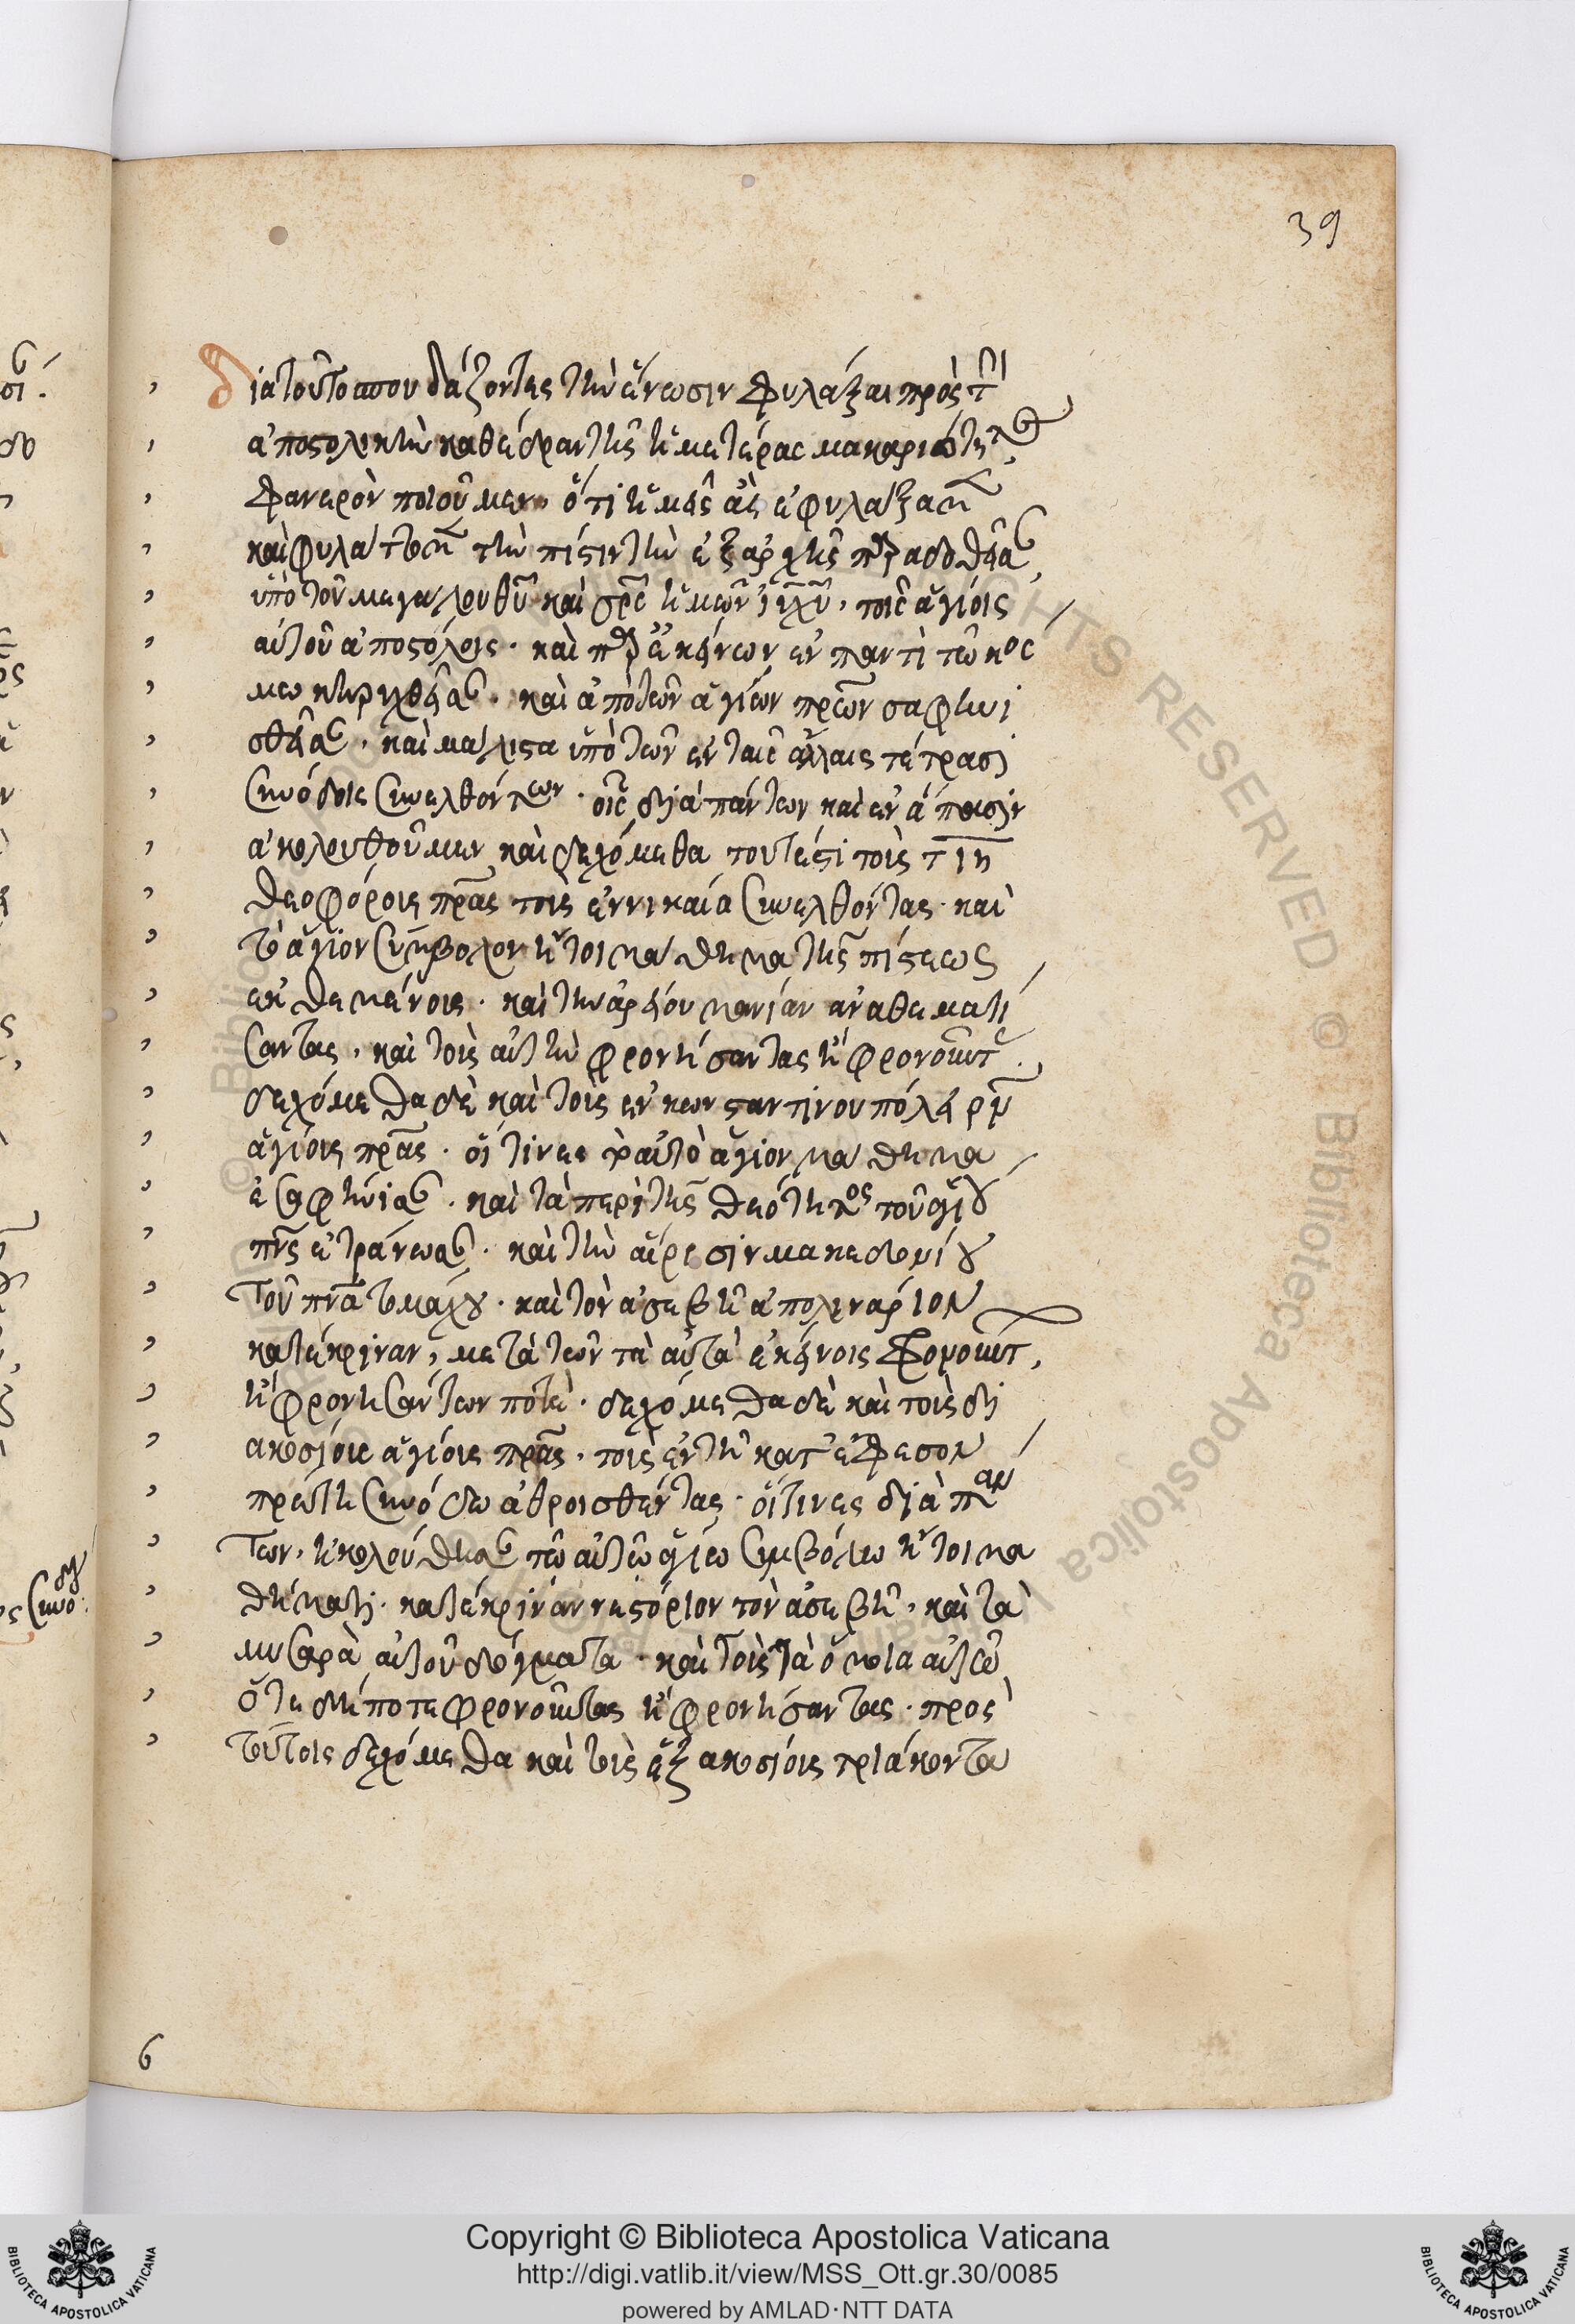 39
διατοῦτο σπουδάζοντες τὴν ἕνωσιν φυλάξαι πρὸς τὴν
ἀποστολικὴν καθέδραν τῆς ὑμετέρας μακαριότητος
φανερὸν ποιοῦμεν· ὅτι ἡμεῖς ἀεὶ ἐφυλάξαμεν
καὶ φυλάττομεν τὴν πίστιν τὴν ἐξ ἀρχῆς παραδοθεῖσαν
ὑπὸ τοῦ μεγάλου θυ καὶ σρς ἡμῶν ιυ χυ, τοῖς ἁγίοις
αὐτοῦ ἀποστόλοις· καὶ παρ' ἐκείνων ἐν παντὶ τῷ κόσ
μω κηρυχθεῖσαν· καὶ ἀπὸ τῶν ἁγίων πρων σαφηνι
σθεῖσαν, καὶ μάλιστα ὑπὸ τῶν ἐν ταῖς ἁγίαις τέτρασι
συνόδοις συνελθόντων· οἷς διὰ πάντων καὶ ἐν ἅπασιν
ἀκολουθοῦμεν καὶ δεχόμεθα τουτέστι τοὺς τιη
θεοφόρους πρας τοὺς ἐν νικαία συνελθόντας· καὶ
τὸ ἅγιον σύμβολον ἤτοι μάθημα τῆς πίστεως
ἐκθεμένους· καὶ τὴν ἀρείου μανίαν ἀναθεματί
σαντας, καὶ τοὺς αὐτὴν φρονήσαντας ἢ φρονοῦντας.
δεχόμεθα δὲ καὶ τοὺς ἐν κωνσταντινουπόλει ρν
ἁγίους πρας· οἵτινες τὸ αὐτὸ ἅγιον μάθημα
ἐσαφήνισαν· καὶ τὰ περὶ τῆς θεότητος τοῦ ἁγίου
πνς ἐτράνωσαν· καὶ τὴν αἵρεσιν μακεδονίου
τοῦ πνατομάχου· καὶ τὸν ἀσεβῆ ἀπολινάριον
κατέκριναν, μετὰ τῶν τὰ αὐτὰ ἐκείνοις φρονούντων,
ἢ φρονησάντων ποτέ· δεχόμεθα δὲ καὶ τοὺς δι
ακοσίους ἁγίους πρας, τοὺς ἐν τῇ κατ' ἔφεσον
πρώτη συνόδω ἀθροισθέντας· οἵτινες διὰ πάν
των, ἠκολούθησαν τῶ αὐτῶ ἁγίω συμβόλω ἤτοι μα
θήματι· κατέκριναν νεστόριον τὸν ἀσεβῆ, καὶ τὰ
μυσαρὰ αὐτοῦ δόγματα· καὶ τοὺς τὰ ὅμοια αὐτῶ
ὅτε δήποτε φρονοῦντας ἢ φρονήσαντας· πρὸς
τούτοις δεχόμεθα καὶ τοὺς ἑξακοσίους τριάκοντα
6
Copyright © Biblioteca Apostolica Vaticana
http://digi.vatlib.it/view/MSS_Ott.gr.30/0085
powered by AMLAD·NTT DATA
BIBLIOTECA APOSTOLICA VATICANA
BIBLIOTECA APOSTOLICA VATICANA